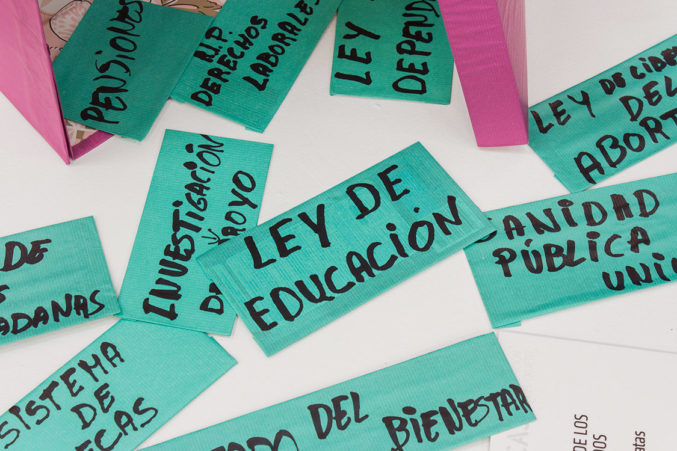 PENSIONES
R.I.P.
DERECHOS
LABORALES
LEY
DEPEND
LEY DE LIBE
DEL
ABORT
INVESTIGACIÓN
Y APOYO
LEY DE
EDUCACIÓN
SANIDAD
PÚBLICA
UNI
DE
DADANAS
SISTEMA
DE
ECAS
DEL
BIENESTAR
DE LOS
DOS
atas